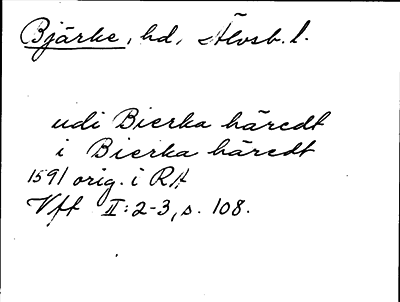 Bjärke, hd, Älvsb. l.
udi Bierka häredt
i Bierka häredt
1591 orig. i RA
Vft II:2-3, s. 108.